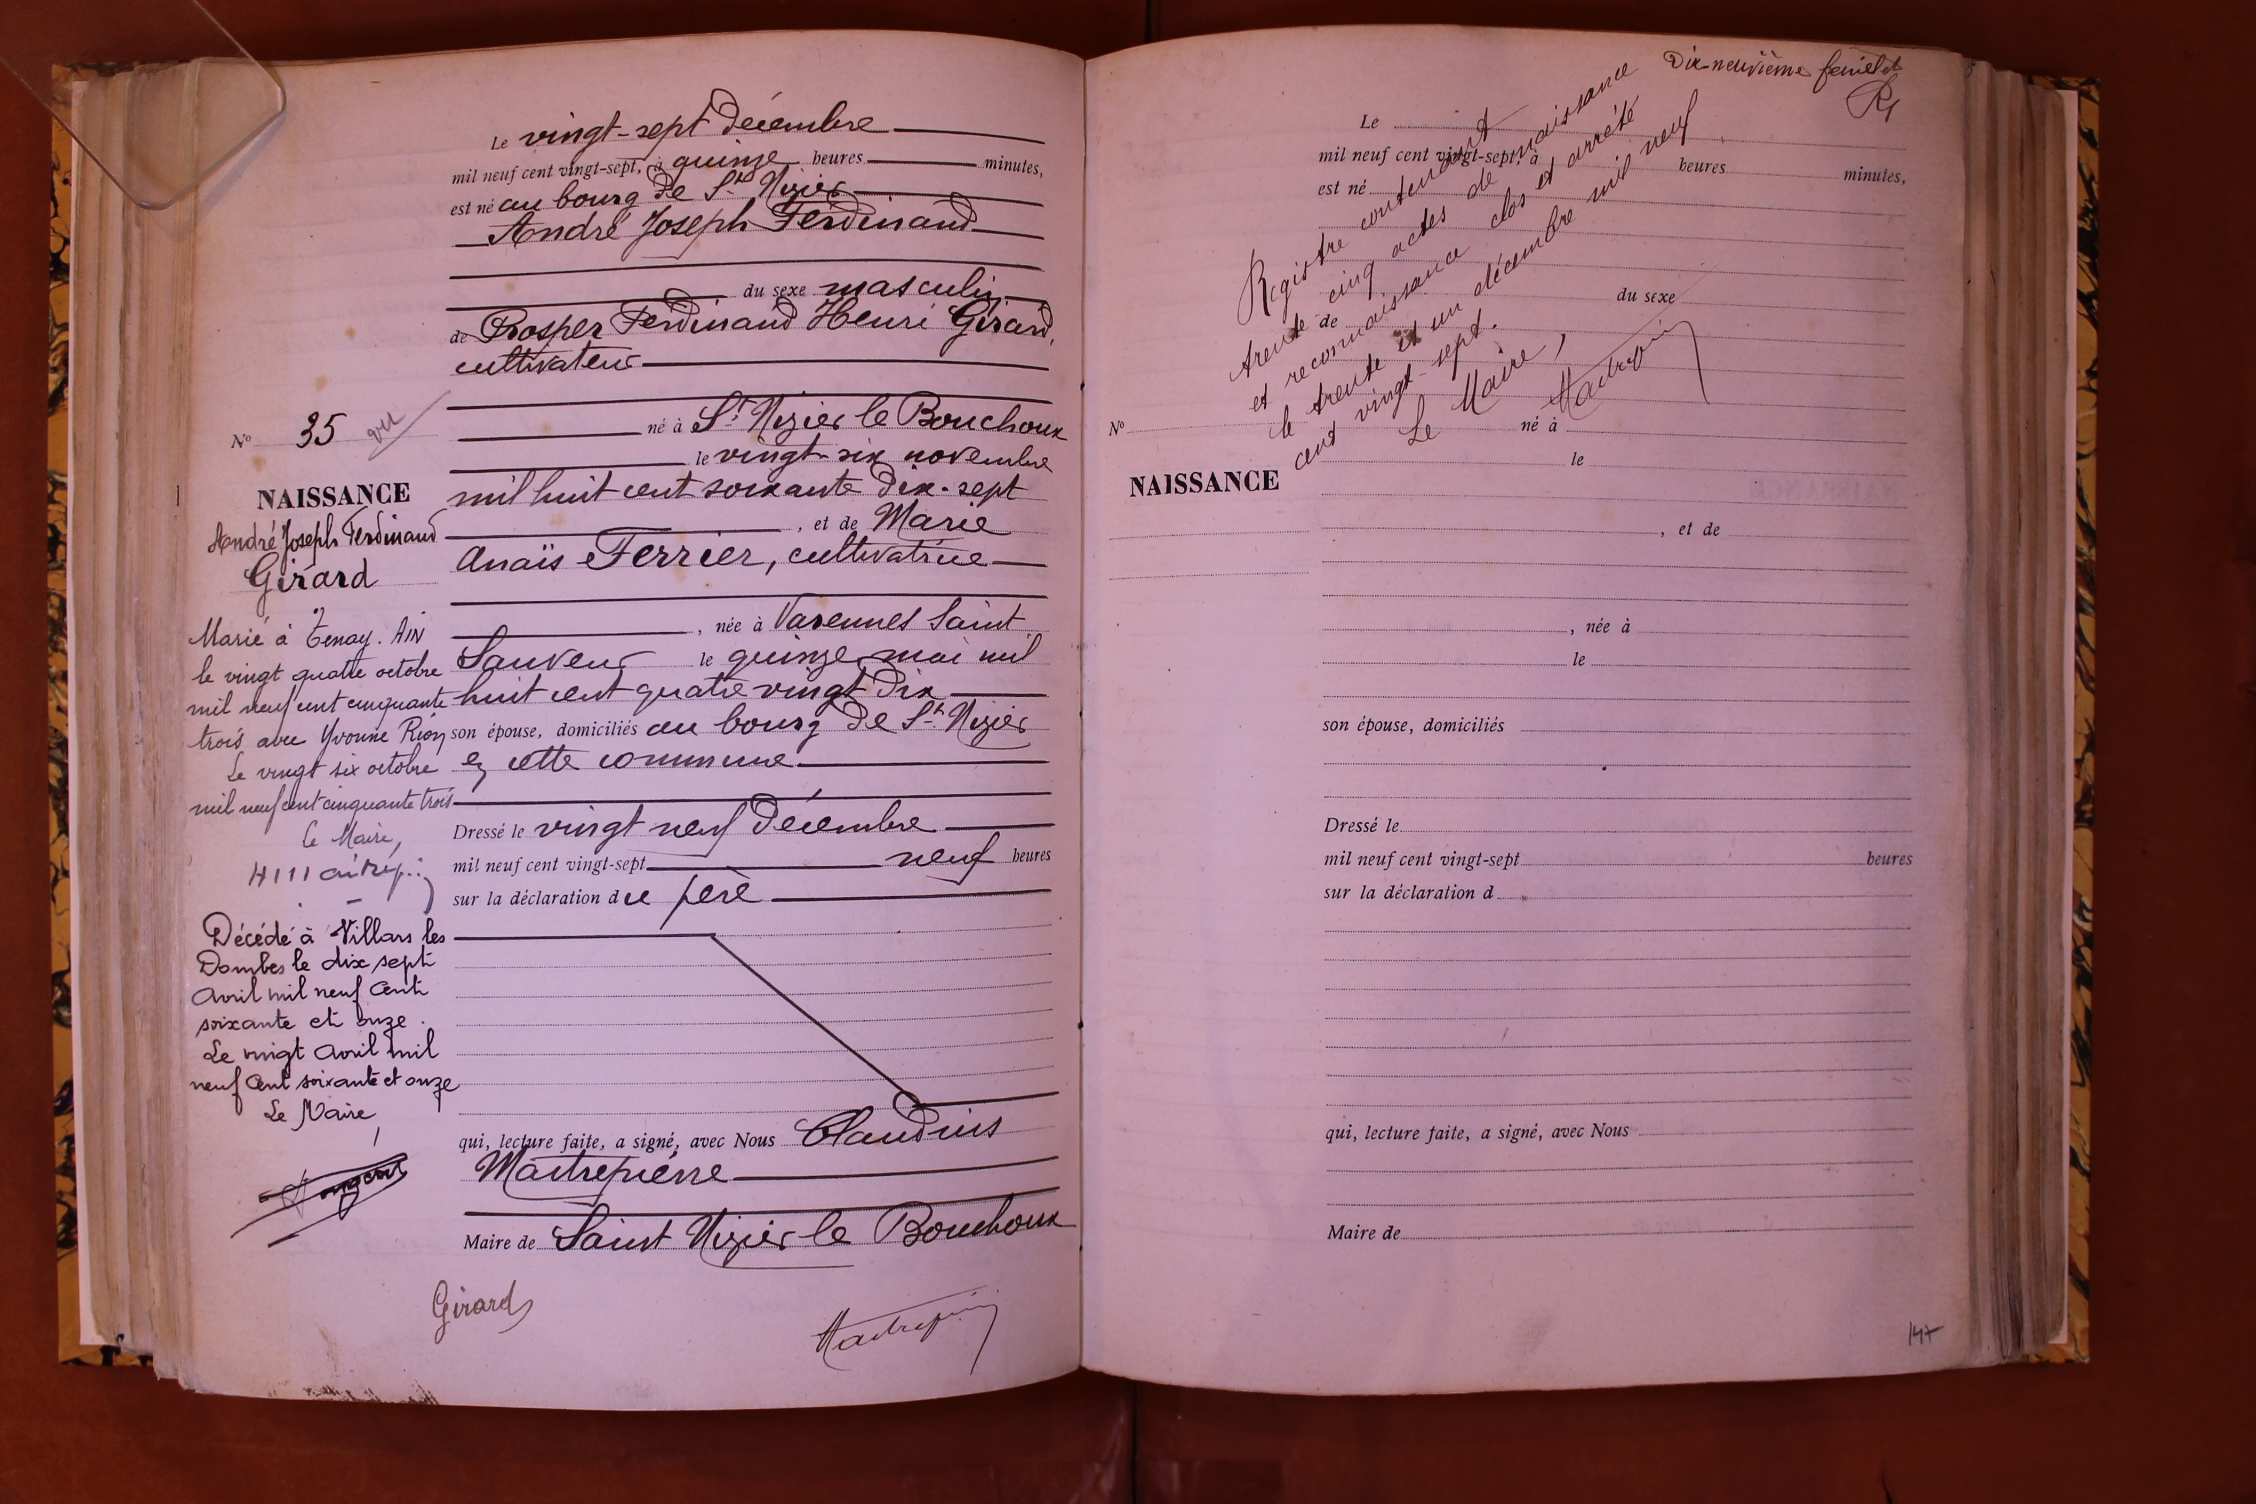 Le vingt-sept décembre
mil neuf cent vingt-sept, à quinze heures minutes,
est né au bourg de St Nizier
André Joseph Ferdinand
du sexe masculin
de Prosper Ferdinand Henri Girard,
cultivateur
né à St Nizier le Bouchoux
le vingt-six novembre
mil huit cent soixante dix-sept
, et de Marie
Anaïs Ferrier, cultivatrice
, née à Varennes Saint
Sauveur le quinze mai mil
huit cent quatre vingt dix
son épouse, domiciliés au bourg de St Nizier
en cette commune
Dressé le vingt neuf décembre
mil neuf cent vingt-sept neuf heures
sur la déclaration du père
qui, lecture faite, a signé, avec Nous Claudius
Maitrepierre
Maire de Saint Nizier le Bouchoux
Girard
No 35 vu
NAISSANCE
André Joseph Ferdinand
Girard
Marié à Tenay. AIN
le vingt quatre octobre
mil neuf cent cinquante
trois avec Yvonne Rion
Le vingt six octobre
mil neuf cent cinquante trois
Le Maire,
Décédé à Villars les
Dombes le dix sept
Avril mil neuf cent
soixante et onze.
Le vingt Avril mil
neuf cent soixante et onze
Le Maire,
Dix neuvième feuillet
Registre contenant
trente cinq actes de naissance
et reconnaissance clos et arrêté
le trente et un décembre mil neuf
cent vingt-sept.
Le Maire,
Le
mil neuf cent vingt-sept, à heures minutes,
est né
du sexe
de
No
né à
le
NAISSANCE
, et de
, née à
le
son épouse, domiciliés
Dressé le
mil neuf cent vingt-sept heures
sur la déclaration d
qui, lecture faite, a signé, avec Nous
Maire de
147